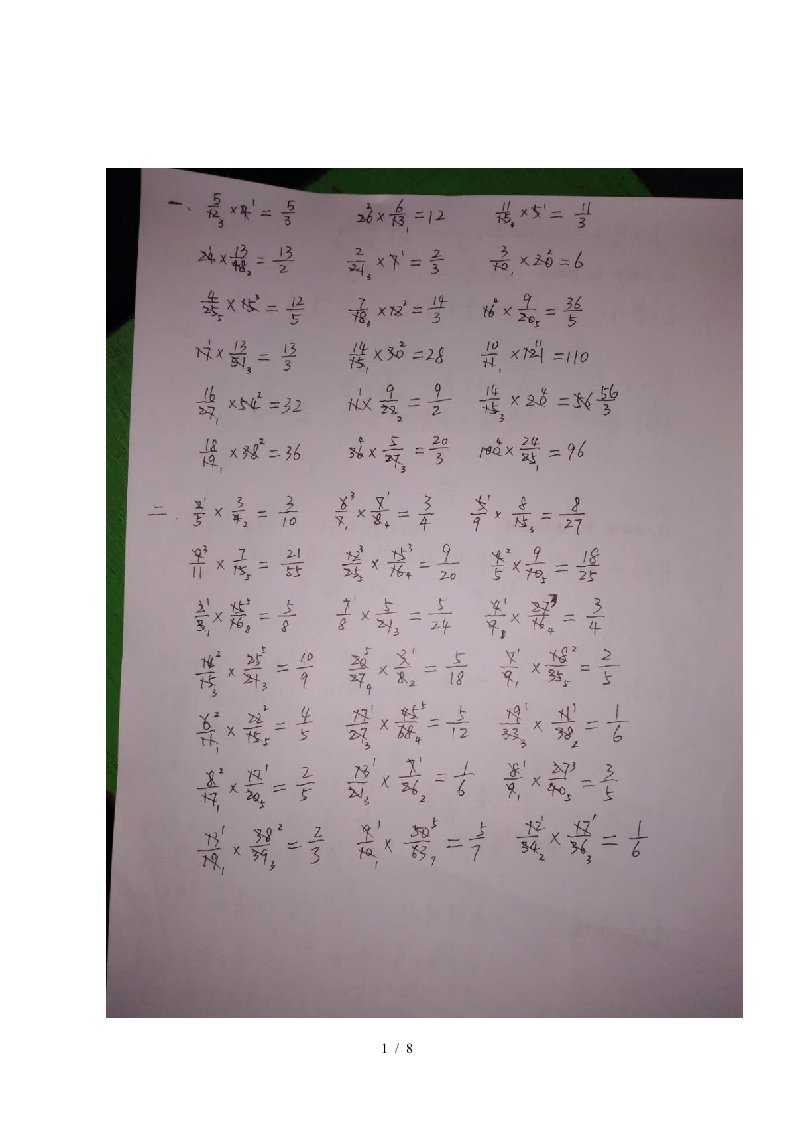 一、 5/12 × 4 = 5/3 26 × 6/13 = 12 11/15 × 5 = 11/3
24 × 13/48 = 13/2 2/21 × 7 = 2/3 3/10 × 20 = 6
4/25 × 15 = 12/5 7/18 × 12 = 14/3 16 × 9/20 = 36/5
17 × 13/51 = 13/3 14/15 × 30 = 28 10/11 × 121 = 110
16/27 × 54 = 32 11 × 9/22 = 9/2 14/15 × 20 = 56/3
18/19 × 38 = 36 36 × 5/27 = 20/3 100 × 24/25 = 96
二、 2/5 × 3/4 = 3/10 6/7 × 7/8 = 3/4 5/9 × 8/15 = 8/27
9/11 × 7/15 = 21/55 12/25 × 15/16 = 9/20 4/5 × 9/10 = 18/25
2/3 × 15/16 = 5/8 7/8 × 5/21 = 5/24 4/9 × 27/16 = 3/4
14/15 × 25/21 = 10/9 20/27 × 3/8 = 5/18 7/9 × 18/35 = 2/5
6/11 × 22/15 = 4/5 17/27 × 45/68 = 5/12 19/33 × 11/38 = 1/6
8/17 × 17/20 = 2/5 13/21 × 7/26 = 1/6 8/9 × 27/40 = 3/5
13/19 × 38/39 = 2/3 9/10 × 50/63 = 5/7 12/34 × 17/36 = 1/6
1 / 8